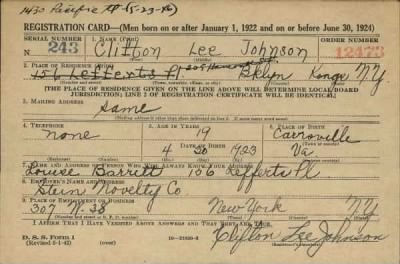 1430 Pacific St (5-23-46)
REGISTRATION CARD—(Men born on or after January 1, 1922 and on or before June 30, 1924)
SERIAL NUMBER 1. NAME (Print) ORDER NUMBER
243 Clifton Lee Johnson 12473
2. PLACE OF RESIDENCE (Print)
156 Lefferts Pl. Bklyn Kings N.Y.
(THE PLACE OF RESIDENCE GIVEN ON THE LINE ABOVE WILL DETERMINE LOCAL BOARD
JURISDICTION; LINE 2 OF REGISTRATION CERTIFICATE WILL BE IDENTICAL)
3. MAILING ADDRESS
Same
4. TELEPHONE 5. AGE IN YEARS 6. PLACE OF BIRTH
none 19 Carrsville
DATE OF BIRTH
4 1923 Va
7. NAME AND ADDRESS OF PERSON WHO WILL ALWAYS KNOW YOUR ADDRESS
Louise Barrett 156 Lefferts Pl
8. EMPLOYER'S NAME AND ADDRESS
Stein Novelty Co
9. PLACE OF EMPLOYMENT OR BUSINESS
307 W. 38 New York NY
I AFFIRM THAT I HAVE VERIFIED ABOVE ANSWERS AND THAT THEY ARE TRUE.
D. S. S. Form 1
(Revised 6-1-42) Clifton Lee Johnson